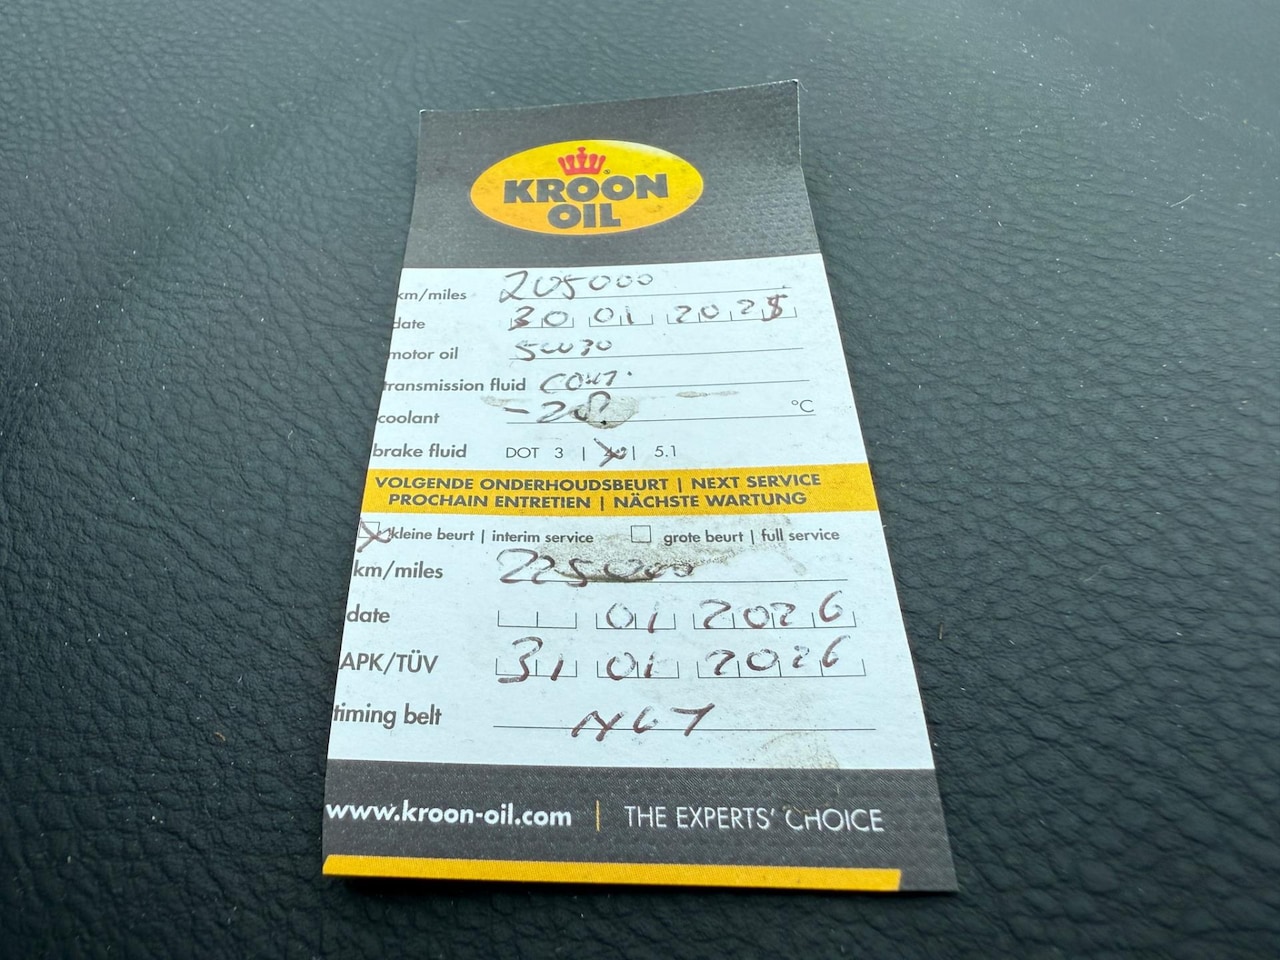 KROON
OIL
km/miles 205000
date 30 01 2025
motor oil 5W30
transmission fluid
coolant -28 °C
brake fluid DOT 3 | | 5.1
VOLGENDE ONDERHOUDSBEURT | NEXT SERVICE
PROCHAIN ENTRETIEN | NÄCHSTE WARTUNG
kleine beurt | interim service grote beurt | full service
km/miles 225000
date 01 2026
APK/TÜV 31 01 2026
timing belt
www.kroon-oil.com | THE EXPERTS' CHOICE